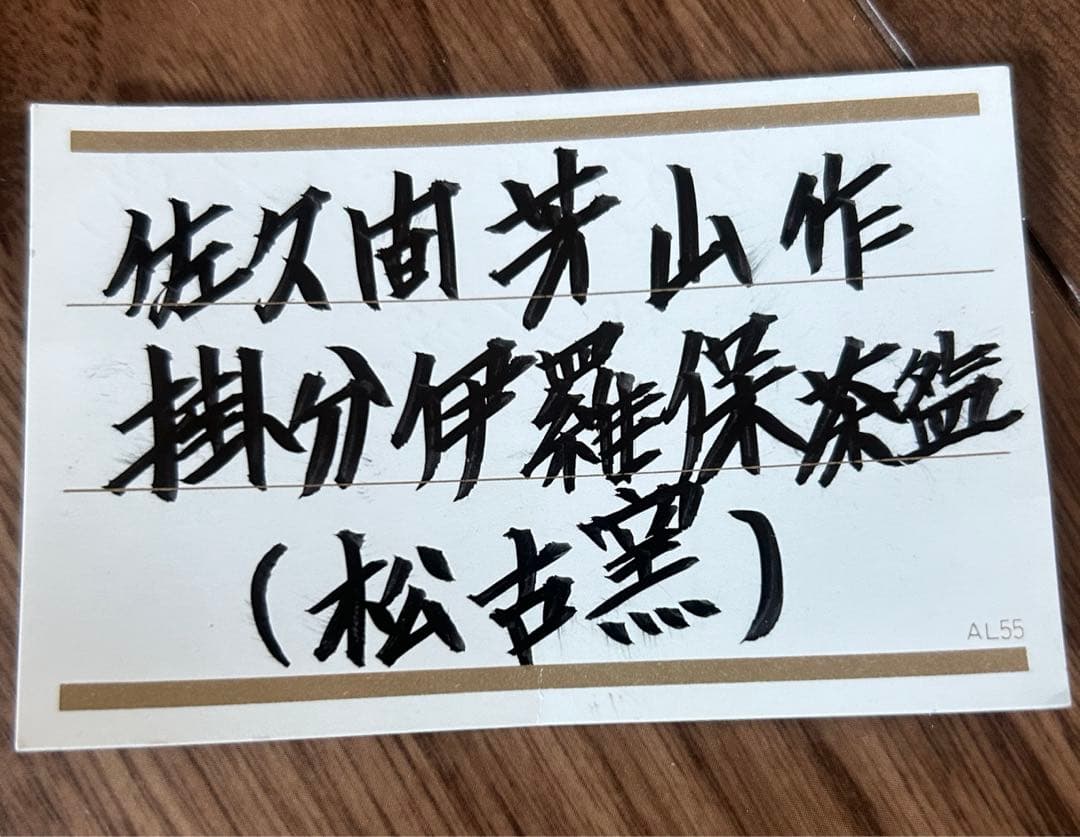 佐久間芳山作
掛分伊羅保茶盌
(松古窯)
AL55